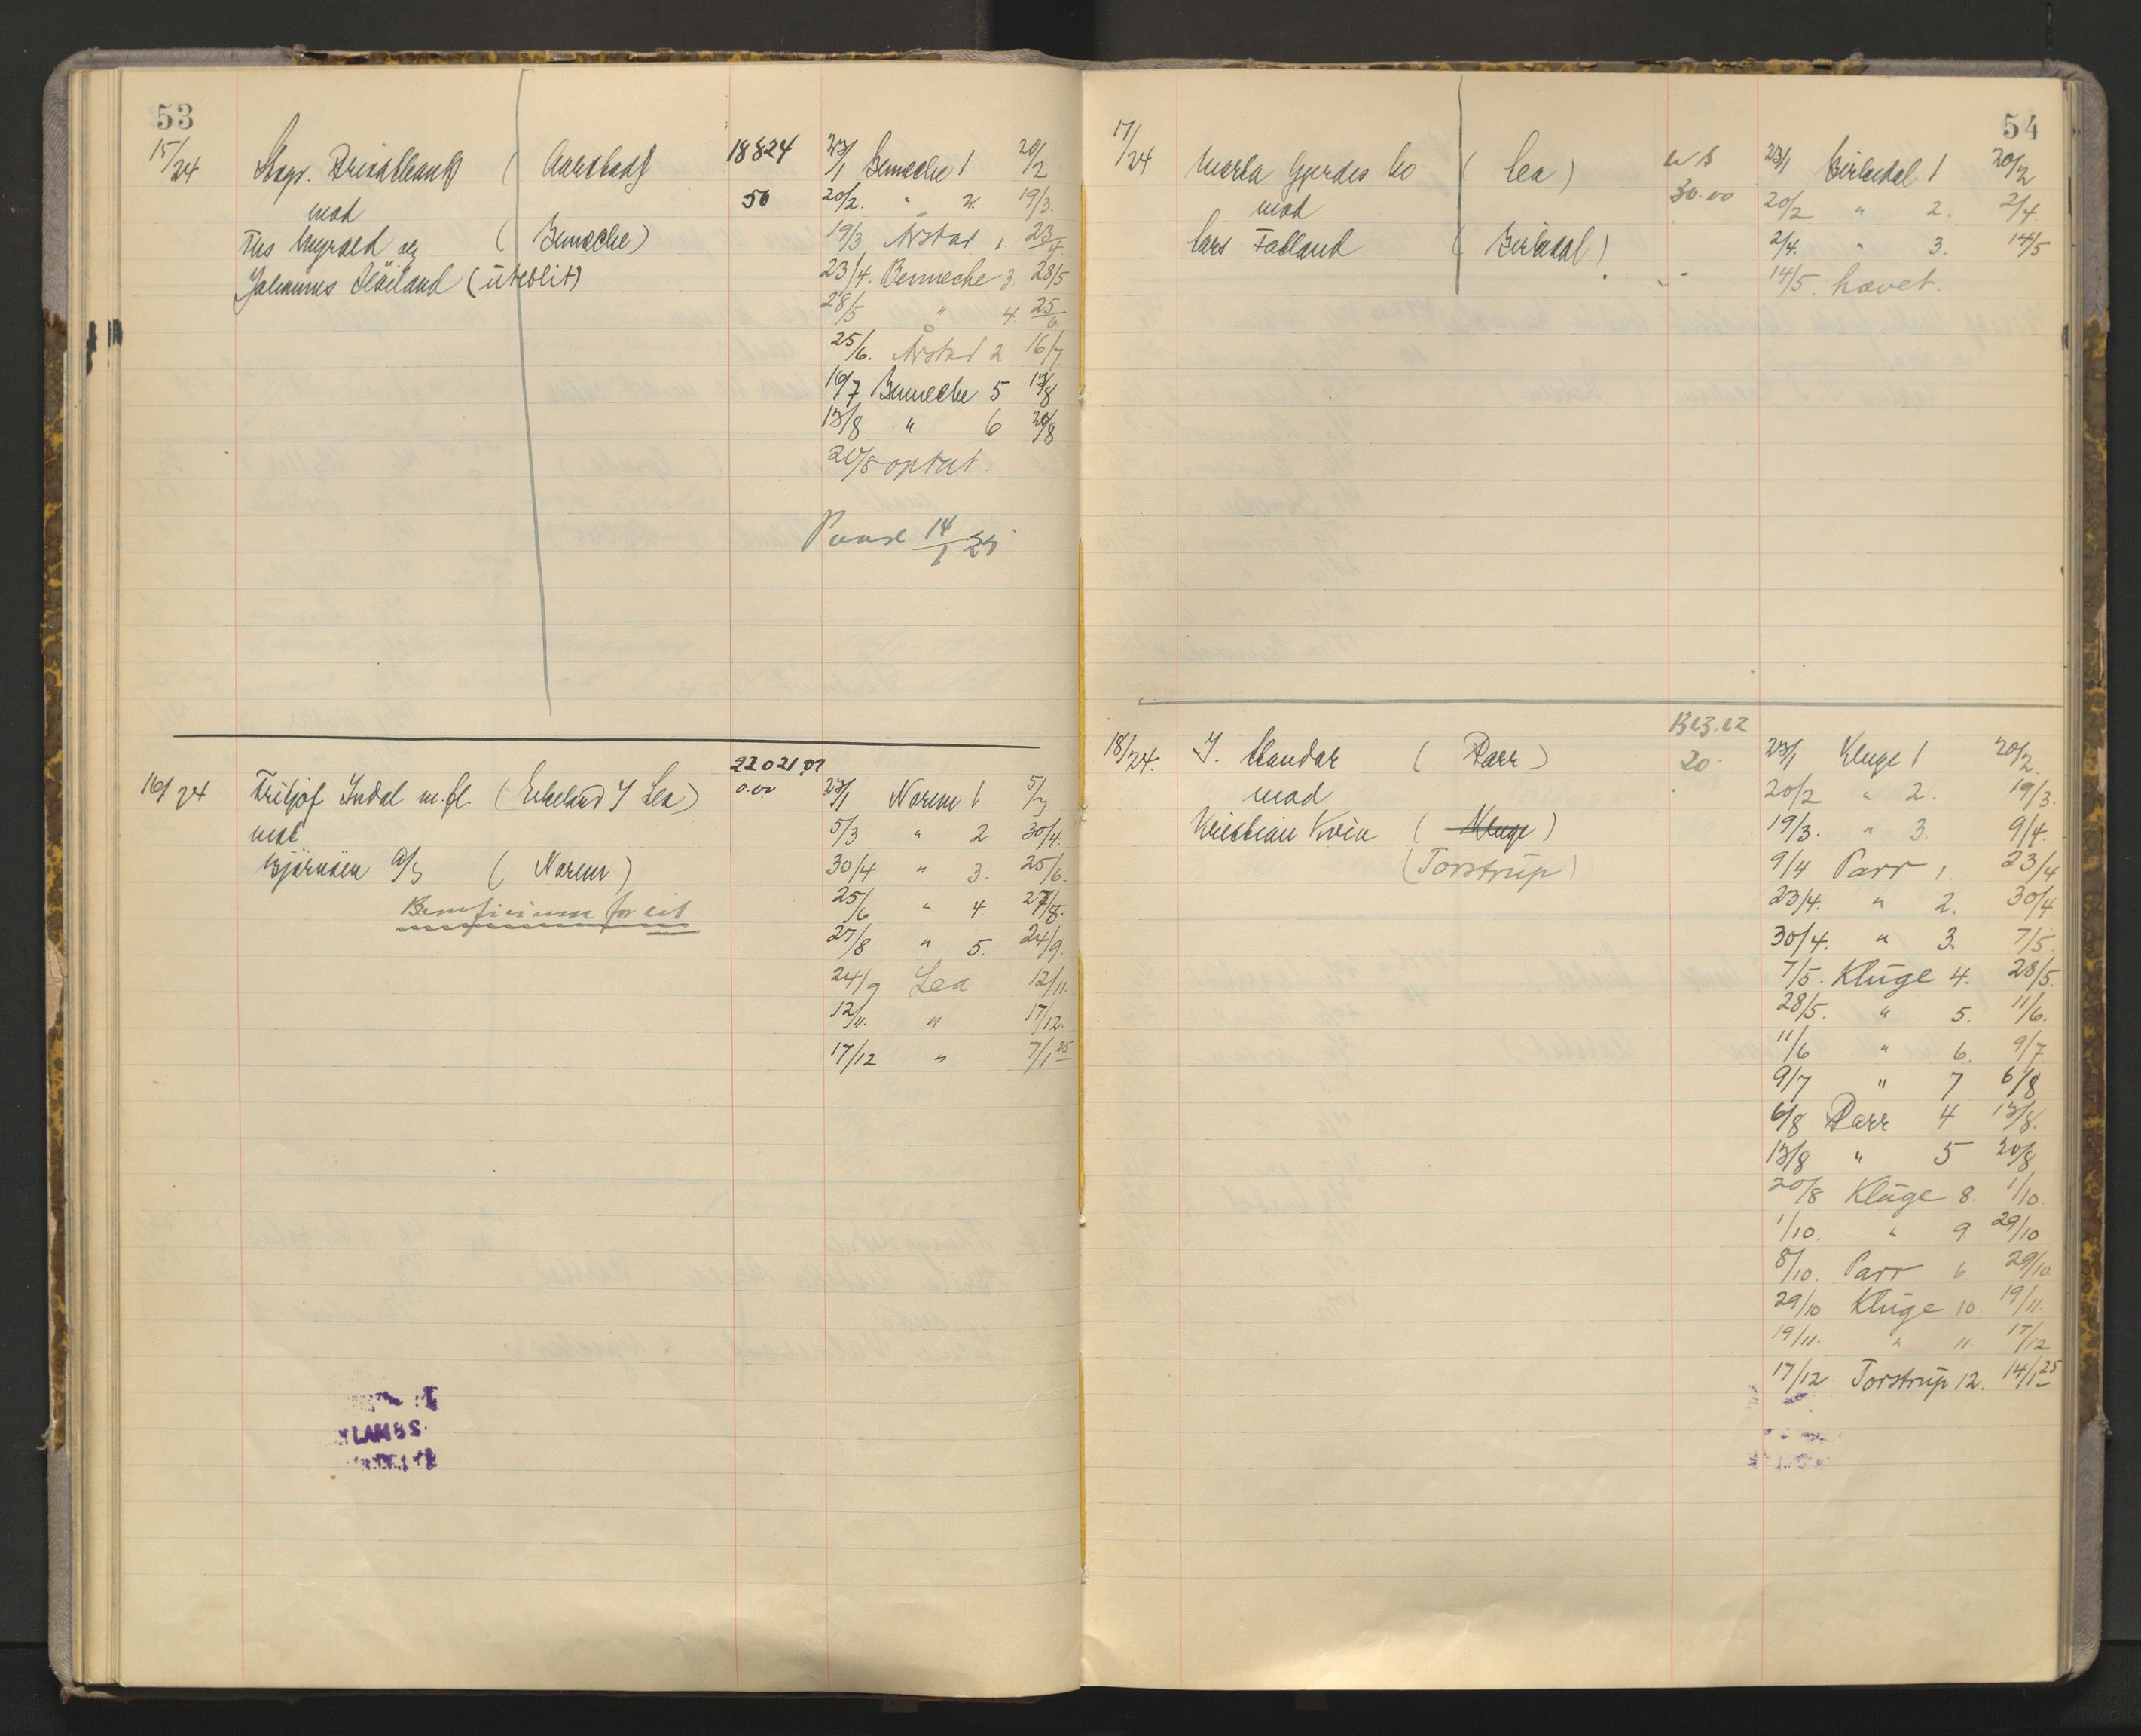 53
15/24 Stagr. Privatbank ( Aarstad)
mod
Ths Myraed og ( Benneche)
Johannes Skeiland (uteblit)
18824
50
23/1 Benneche 1 20/2
20/2. " 2. 19/3.
19/3 Årstad 1. 23/4
23/4. Benneche 3. 28/5
28/5 " 4. 25/6.
25/6. Årstad 2 16/7
16/7 Benneche 5 13/8
13/8 " 6 20/8
20/8 optat.
14/1 25
16/24 Fritjof Indal m.fl. ( Erkeland J Lea)
mod
Bjørnsen A/S ( Norem)
Beneficium for cit
22021
0.00
23/1 Norem 1 5/3
5/3 " 2. 30/4.
30/4 " 3. 25/6.
25/6 " 4. 27/8.
27/8 " 5. 24/9.
24/9 Lea 12/11.
12/11. " 17/12.
17/12 " 7/1 25
54
17/24 Marta Gjerdes bo ( Lea)
mod
Lars Fatland ( Birkedal)
30.00
23/1 Birkedal 1 20/2
20/2 " 2. 2/4.
2/4. " 3. 14/5
14/5. hævet.
18/24. J. Standar ( Parr)
mod
Kristian Kvia ( Kluge)
(Torstrup)
1323.22
20.
23/1 Kluge 1 20/2.
20/2 " 2. 19/3.
19/3. " 3. 9/4.
9/4 Parr 1. 23/4
23/4. " 2. 30/4
30/4. " 3. 7/5.
7/5. Kluge 4. 28/5.
28/5. " 5. 11/6.
11/6 " 6. 9/7
9/7 " 7 6/8
6/8 Parr 4 13/8.
13/8 " 5 20/8
20/8 Kluge 8. 1/10.
1/10. " 9. 29/10
8/10. Parr 6. 29/10.
29/10 Kluge 10. 19/11.
19/11. " 11. 17/12
17/12 Torstrup 12. 14/1 25